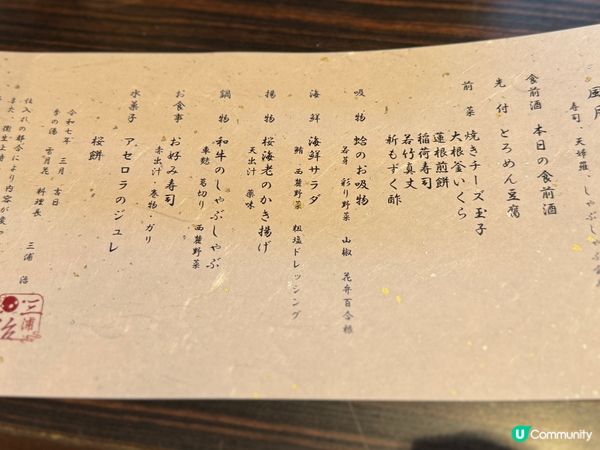 寿司、天婦羅、しゃぶしゃぶ
食前酒 本日の食前酒
先付 とろめん豆腐
前菜 焼きチーズ玉子
大根釜いくら
蓮根煎餅
稲荷寿司
若竹真丈
新もずく酢
吸物 蛤のお吸物
若芽 彩り野菜 山椒 花弁百合根
海鮮 海鮮サラダ
鮪 西麓野菜 粗塩ドレッシング
揚物 桜海老のかき揚げ
天出汁 薬味
鍋物 和牛のしゃぶしゃぶ
車麩 葛切り 西麓野菜
お食事 お好み寿司
赤出汁・巻物・ガリ
水菓子 アセロラのジュレ
桜餅
令和七年 三月 吉日
季の湯 雪月花 料理長 三浦 浩
仕入れの都合により内容が変
三浦
U Community